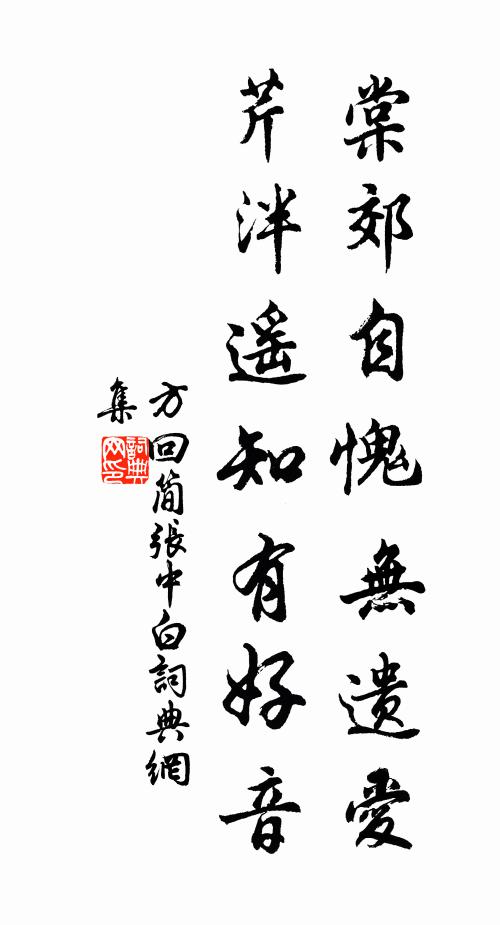 棠郊自愧無遺愛
芹泮遥知有好音
方回簡張中白詞典網
集
詞典網印